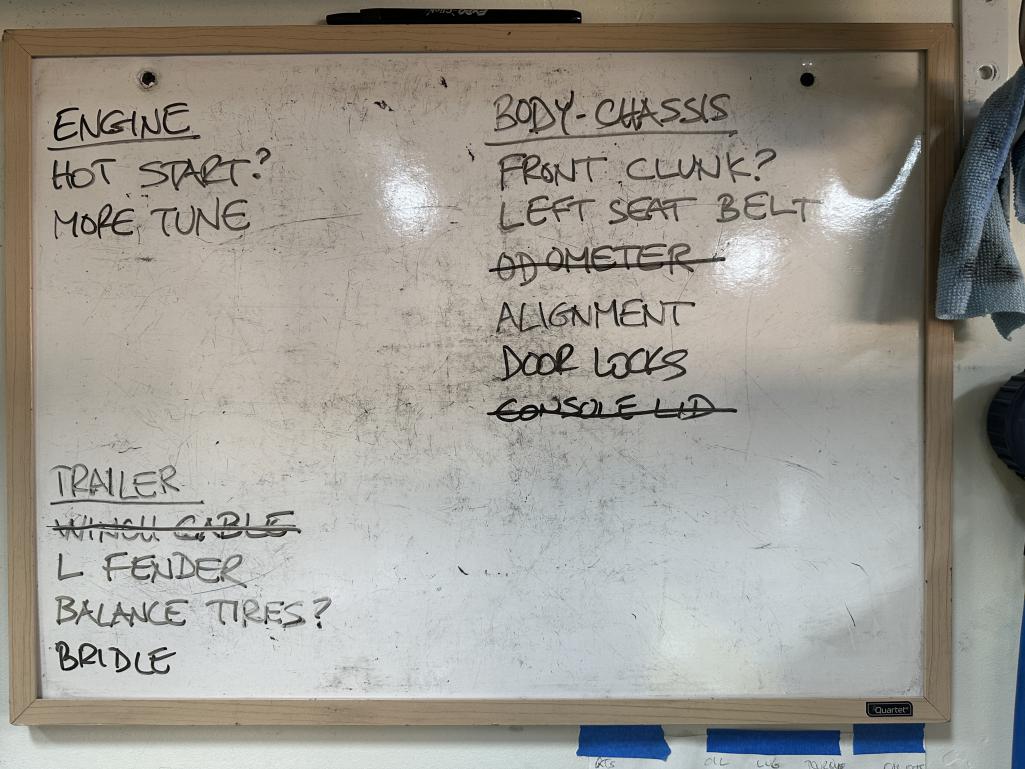 ENGINE
HOT START?
MORE TUNE
BODY-CHASSIS
FRONT CLUNK?
LEFT SEAT BELT
ODOMETER
ALIGNMENT
DOOR LOCKS
CONSOLE LID
TRAILER
WINCH CABLE
L FENDER
BALANCE TIRES?
BRIDLE
Quartet
OIL LUG TORQUE